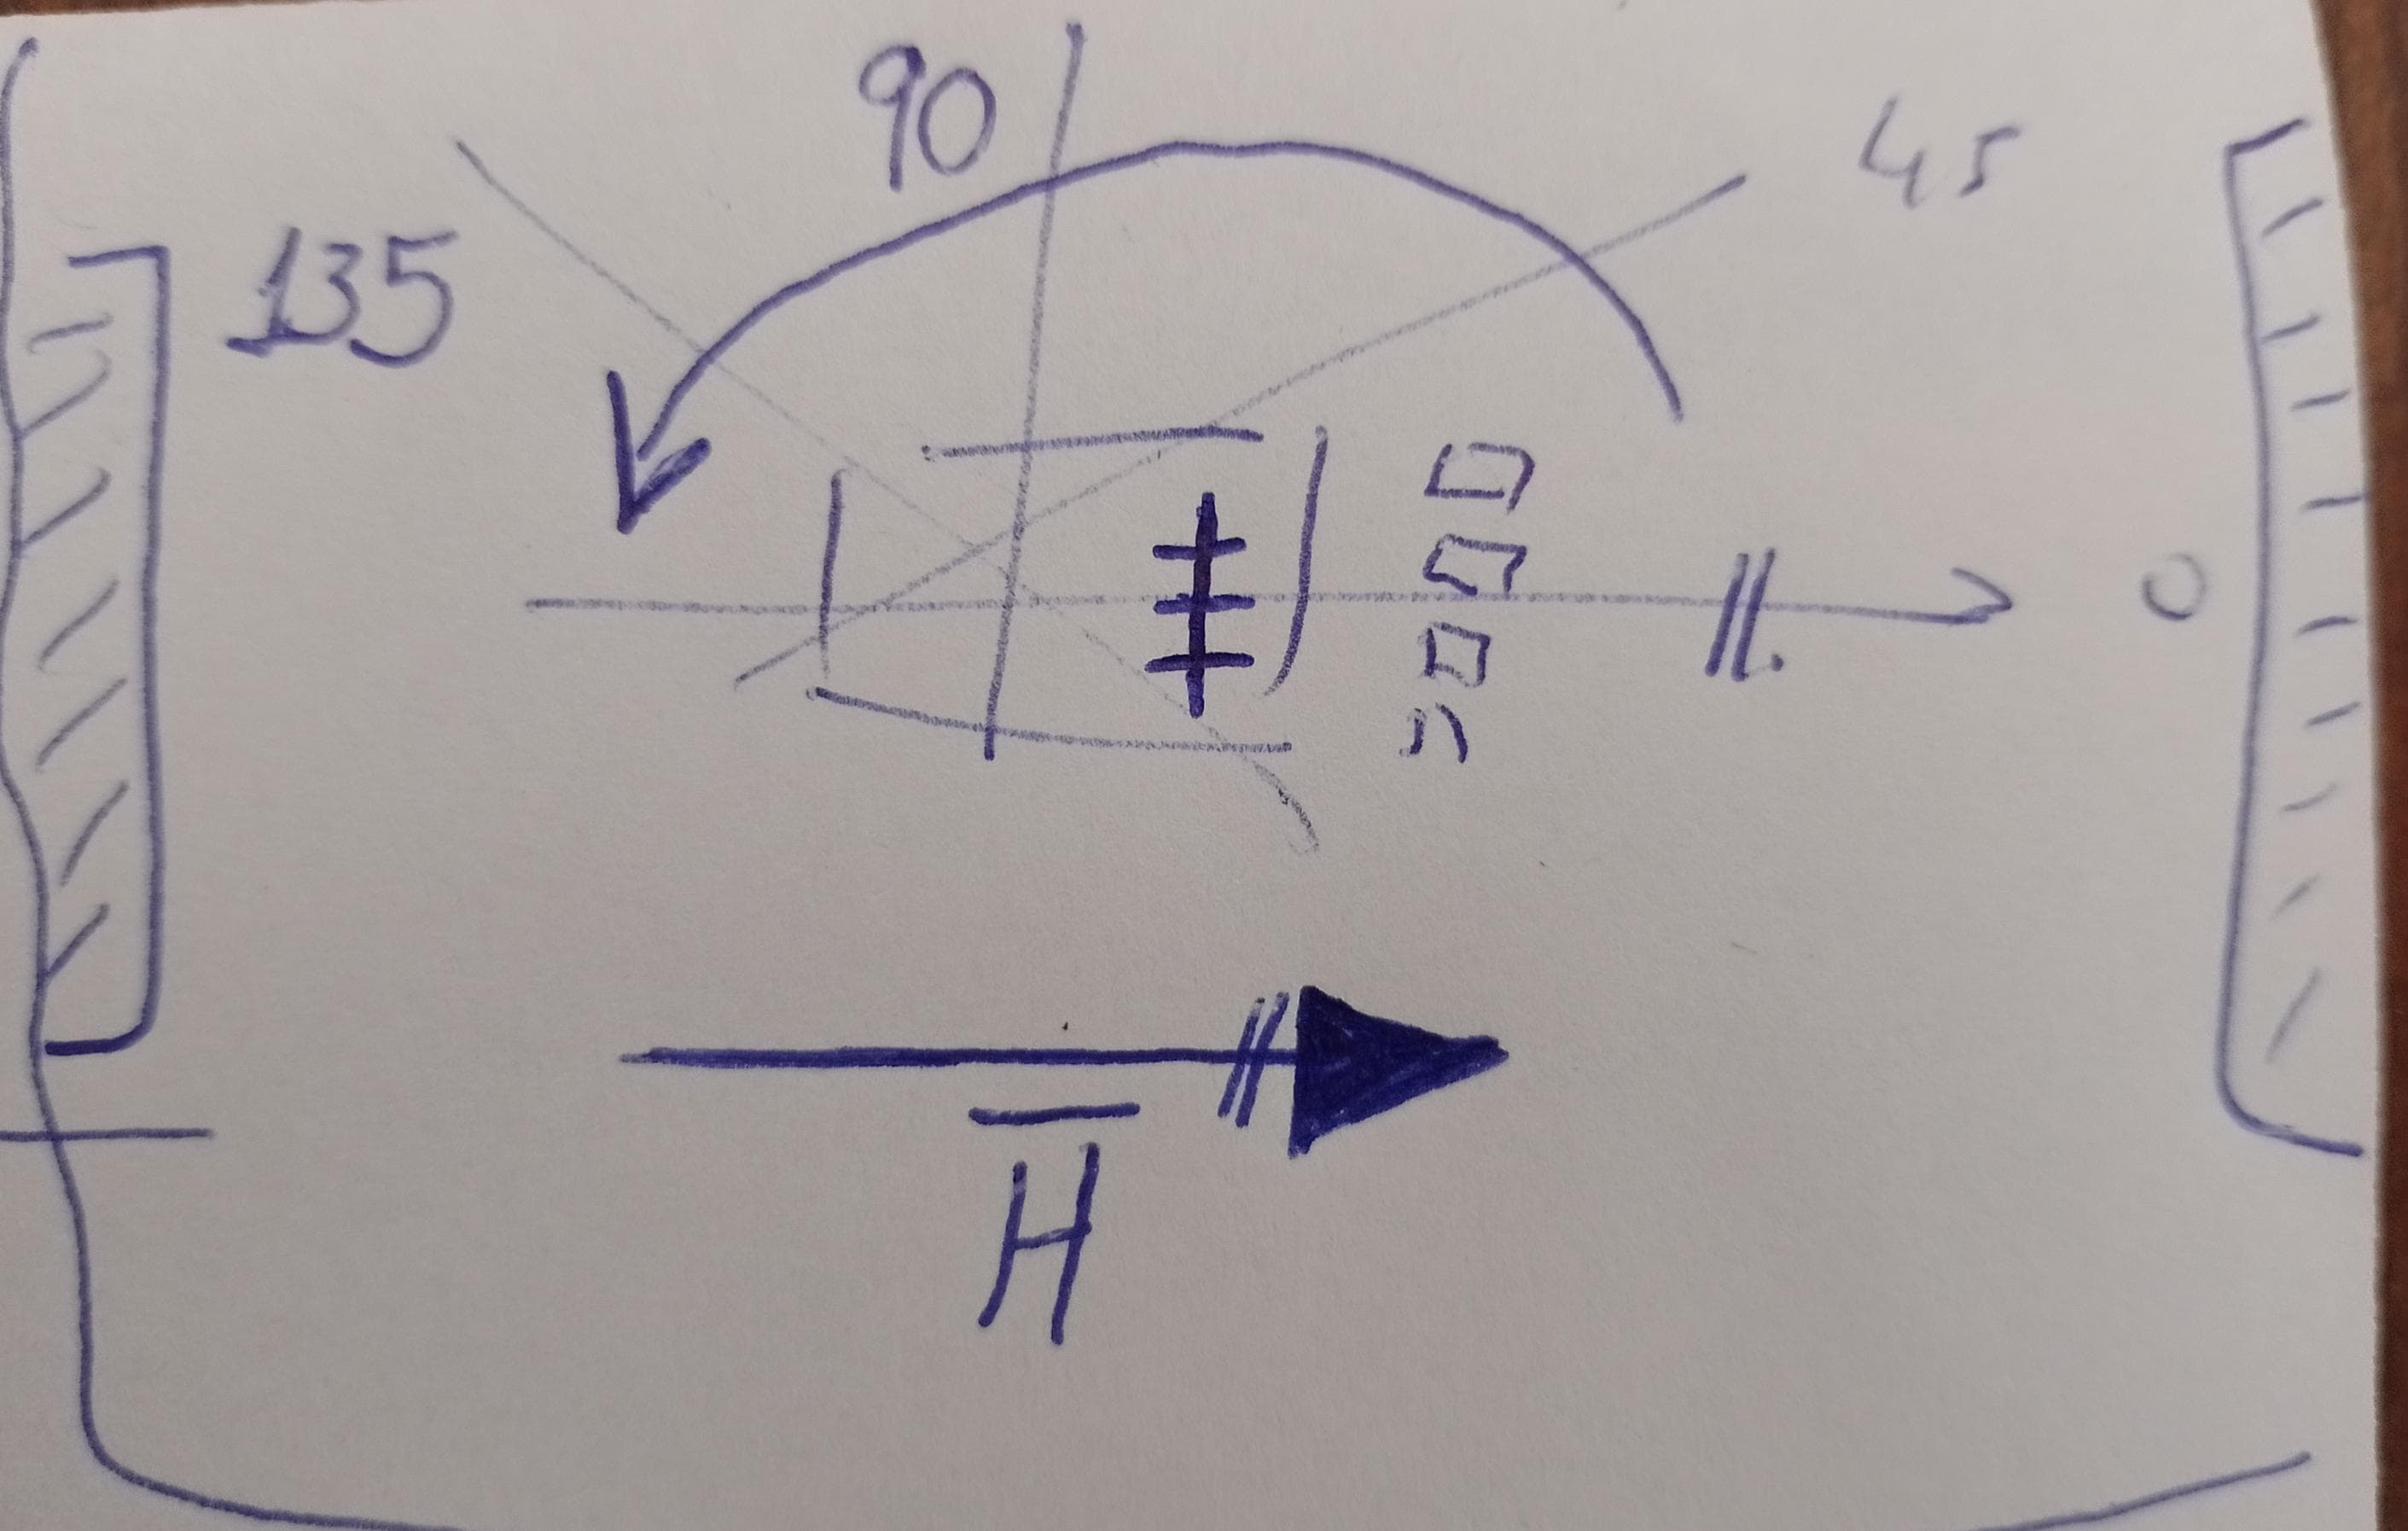 90
45
135
0
H